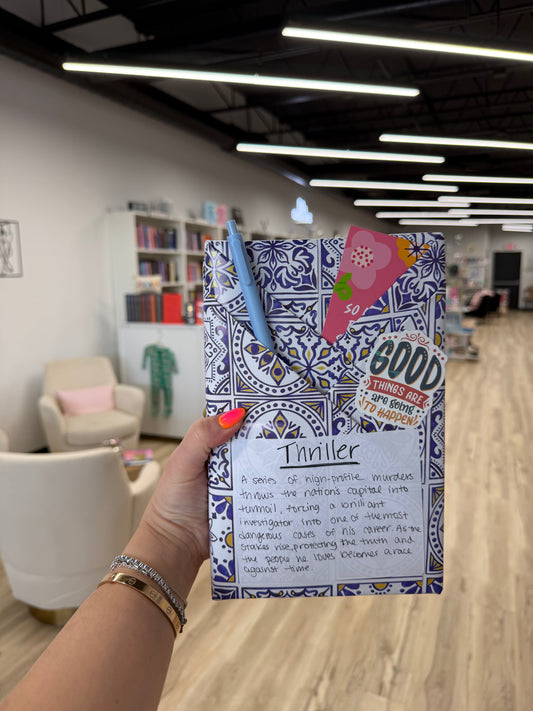 so
GOOD
THINGS ARE
are going
TO HAPPEN!
Thriller
A series of high-profile murders
throws the nation's capital into
turmoil, forcing a brilliant
investigator into one of the most
dangerous cases of his career. As the
stakes rise, protecting the truth and
the people he loves becomes a race
against time.